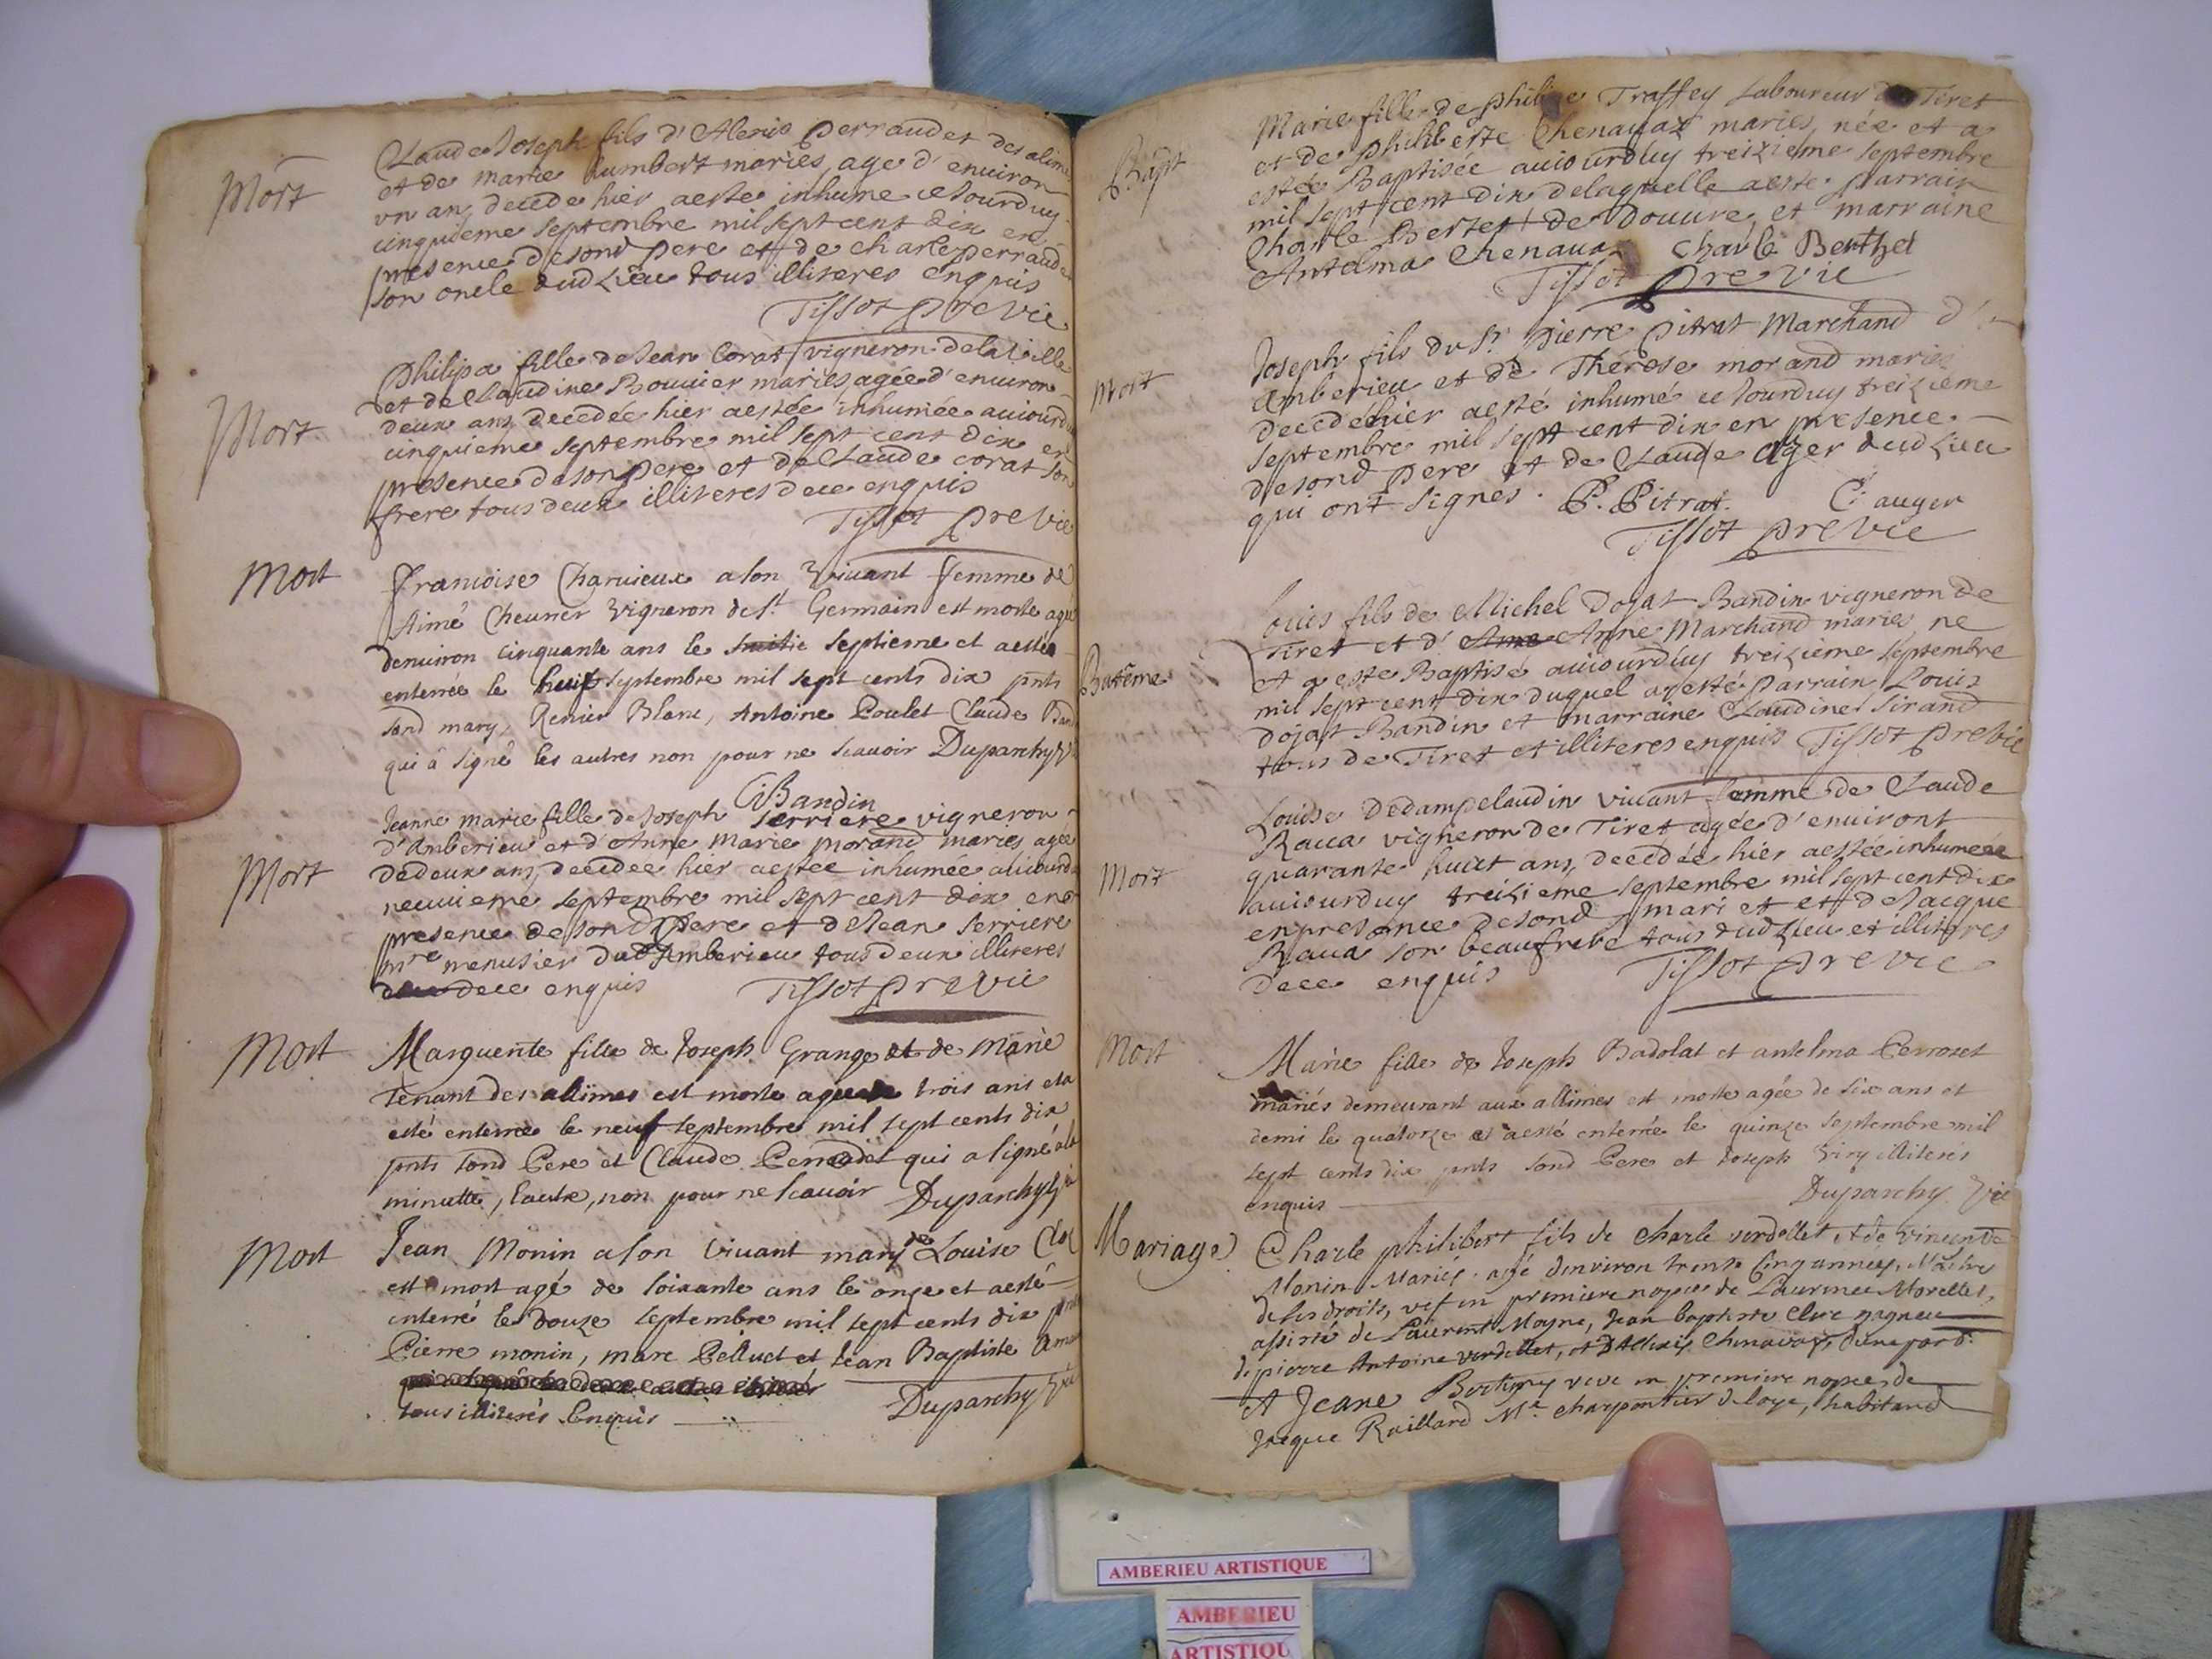 Mort
Claude Joseph fils d'Alexis perraud et des alimes
et de marie humbert mariés, age d'environ
un an, decede hier a este inhume ce Jourduy
cinquieme septembre mil sept cent dix en
presence desond pere et de charle perraud
son oncle dud Lieu tous illiteres enquis
Tissot pre vic
Mort
philipa fille de Jean Corat vigneron de la ville
et de Claudine Bouvier mariés, agée d'environ
deux ans, decedée hier a estée inhumée auiourd
cinquieme septembre mil sept cent dix en
presence de son pere et de Claude corat son
frere tous deux illiteres de ce enquis
Tissot pre vic
Mort
francoise Charuieux a son Viuant femme de
Aimé Cheurier Vigneron de St Germain est morte agé
denuiron cinquante ans le septieme et a estée
enterrée le huit septembre mil sept cents dix pnts
sond mary, Renier Blanc, Antoine Poulet Claude Band
qui à signé les autres non pour ne scauoir Duparchy Vi
Mort
C: Bandin
Jeanne marie fille de Joseph serriere vigneron
d'Amberieu et d'Anne Marie morand mariés agée
de deux ans, decedee hier a estee inhumée auiourd
neuuieme septembre mil sept cent dix en
presence de sond pere et de Jean serriere
mre menusier dud Amberieu tous deux illiteres
de ce enquis Tissot pre vic
Mort
Marguerite fille de Joseph Grange et de Marie
Tenant des allimes est morte agée trois ans et a
esté enterrée le neuf septembre mil sept cents dix
pnts sond Pere et Claude qui a signé a la
minutte, l'autre, non pour ne scauoir Duparchy Vi
Mort
Jean Monin a son Viuant mary de Louise
est mort agé de soixante ans le onze et a esté
enterré le douze septembre mil sept cents dix pnts
Pierre monin, marc Pelluet et Jean Baptiste
tous illiterés Enquis Duparchy Vic
Bapt
Marie fille de philipe Traffey Laboureur de Tiret
et de philiberte Chenauaz mariés, née et a
estée Baptisée auiourduy treizieme septembre
mil sept cent dix de laquelle a este parrain
Charle Bertet de Douure et marraine
Antelma Chenauaz Charle Berthet
Tissot pre vic
Mort
Joseph fils du Sr pierre pitrat Marchand d'
Amberieu et de Thérese morand mariés
decedé hier a esté inhumé ce Jourduy treizieme
septembre mil sept cent dix en presence
desond pere et de Claude Oger dud Lieu
qui ont signés. P. Pitrat. C: auger
Tissot pre vic
Batême
Louis fils de Michel Dojat Bandin vigneron de
Tiret et d' Anne Marchand mariés ne
et a este Baptisé auiourduy treizieme septembre
mil sept cent dix duquel a esté parrain Louis
Dojat Bandin et marraine Claudine Sirand
tous de Tiret et illiteres enquis Tissot pre vic
Mort
Louise Dedampclaudin viuant femme de Claude
Raua vigneron de Tiret agée d'enuiront
quarante huict ans, decedée hier a estée inhumée
auiourduy treizieme septembre mil sept cent dix
en presence desond mari et et de Jacque
Raua son beaufrere tous dud Lieu et illiteres
de ce enquis Tissot pre vic
Mort
Marie fille de Joseph Badolat et antelma Perroset
mariés demeurant aux allimes est morte agée de six ans et
demi le quatorze et a esté enterrée le quinze septembre mil
sept cents dix pnts sond Pere et Joseph Viry illiterés
enquis Duparchy Vic
Mariage
Charle philibert fils de Charle verdellet et de vincende
Monin Mariés. agé denviron trente cinq années, Maître
de ses droits, vef en premiere nopces de Laurence Morellet,
assisté de Laurent Moyne, Jean baptiste Clerc gagneu
de pierre Antoine verdellet, et D'Allexis Chenavaz, d'une part &
Et Jeane veve en premiere nopces de
Jacque Raillard Me charpentier de loye, habitand
AMBERIEU ARTISTIQUE
AMBERIEU
ARTISTIQU